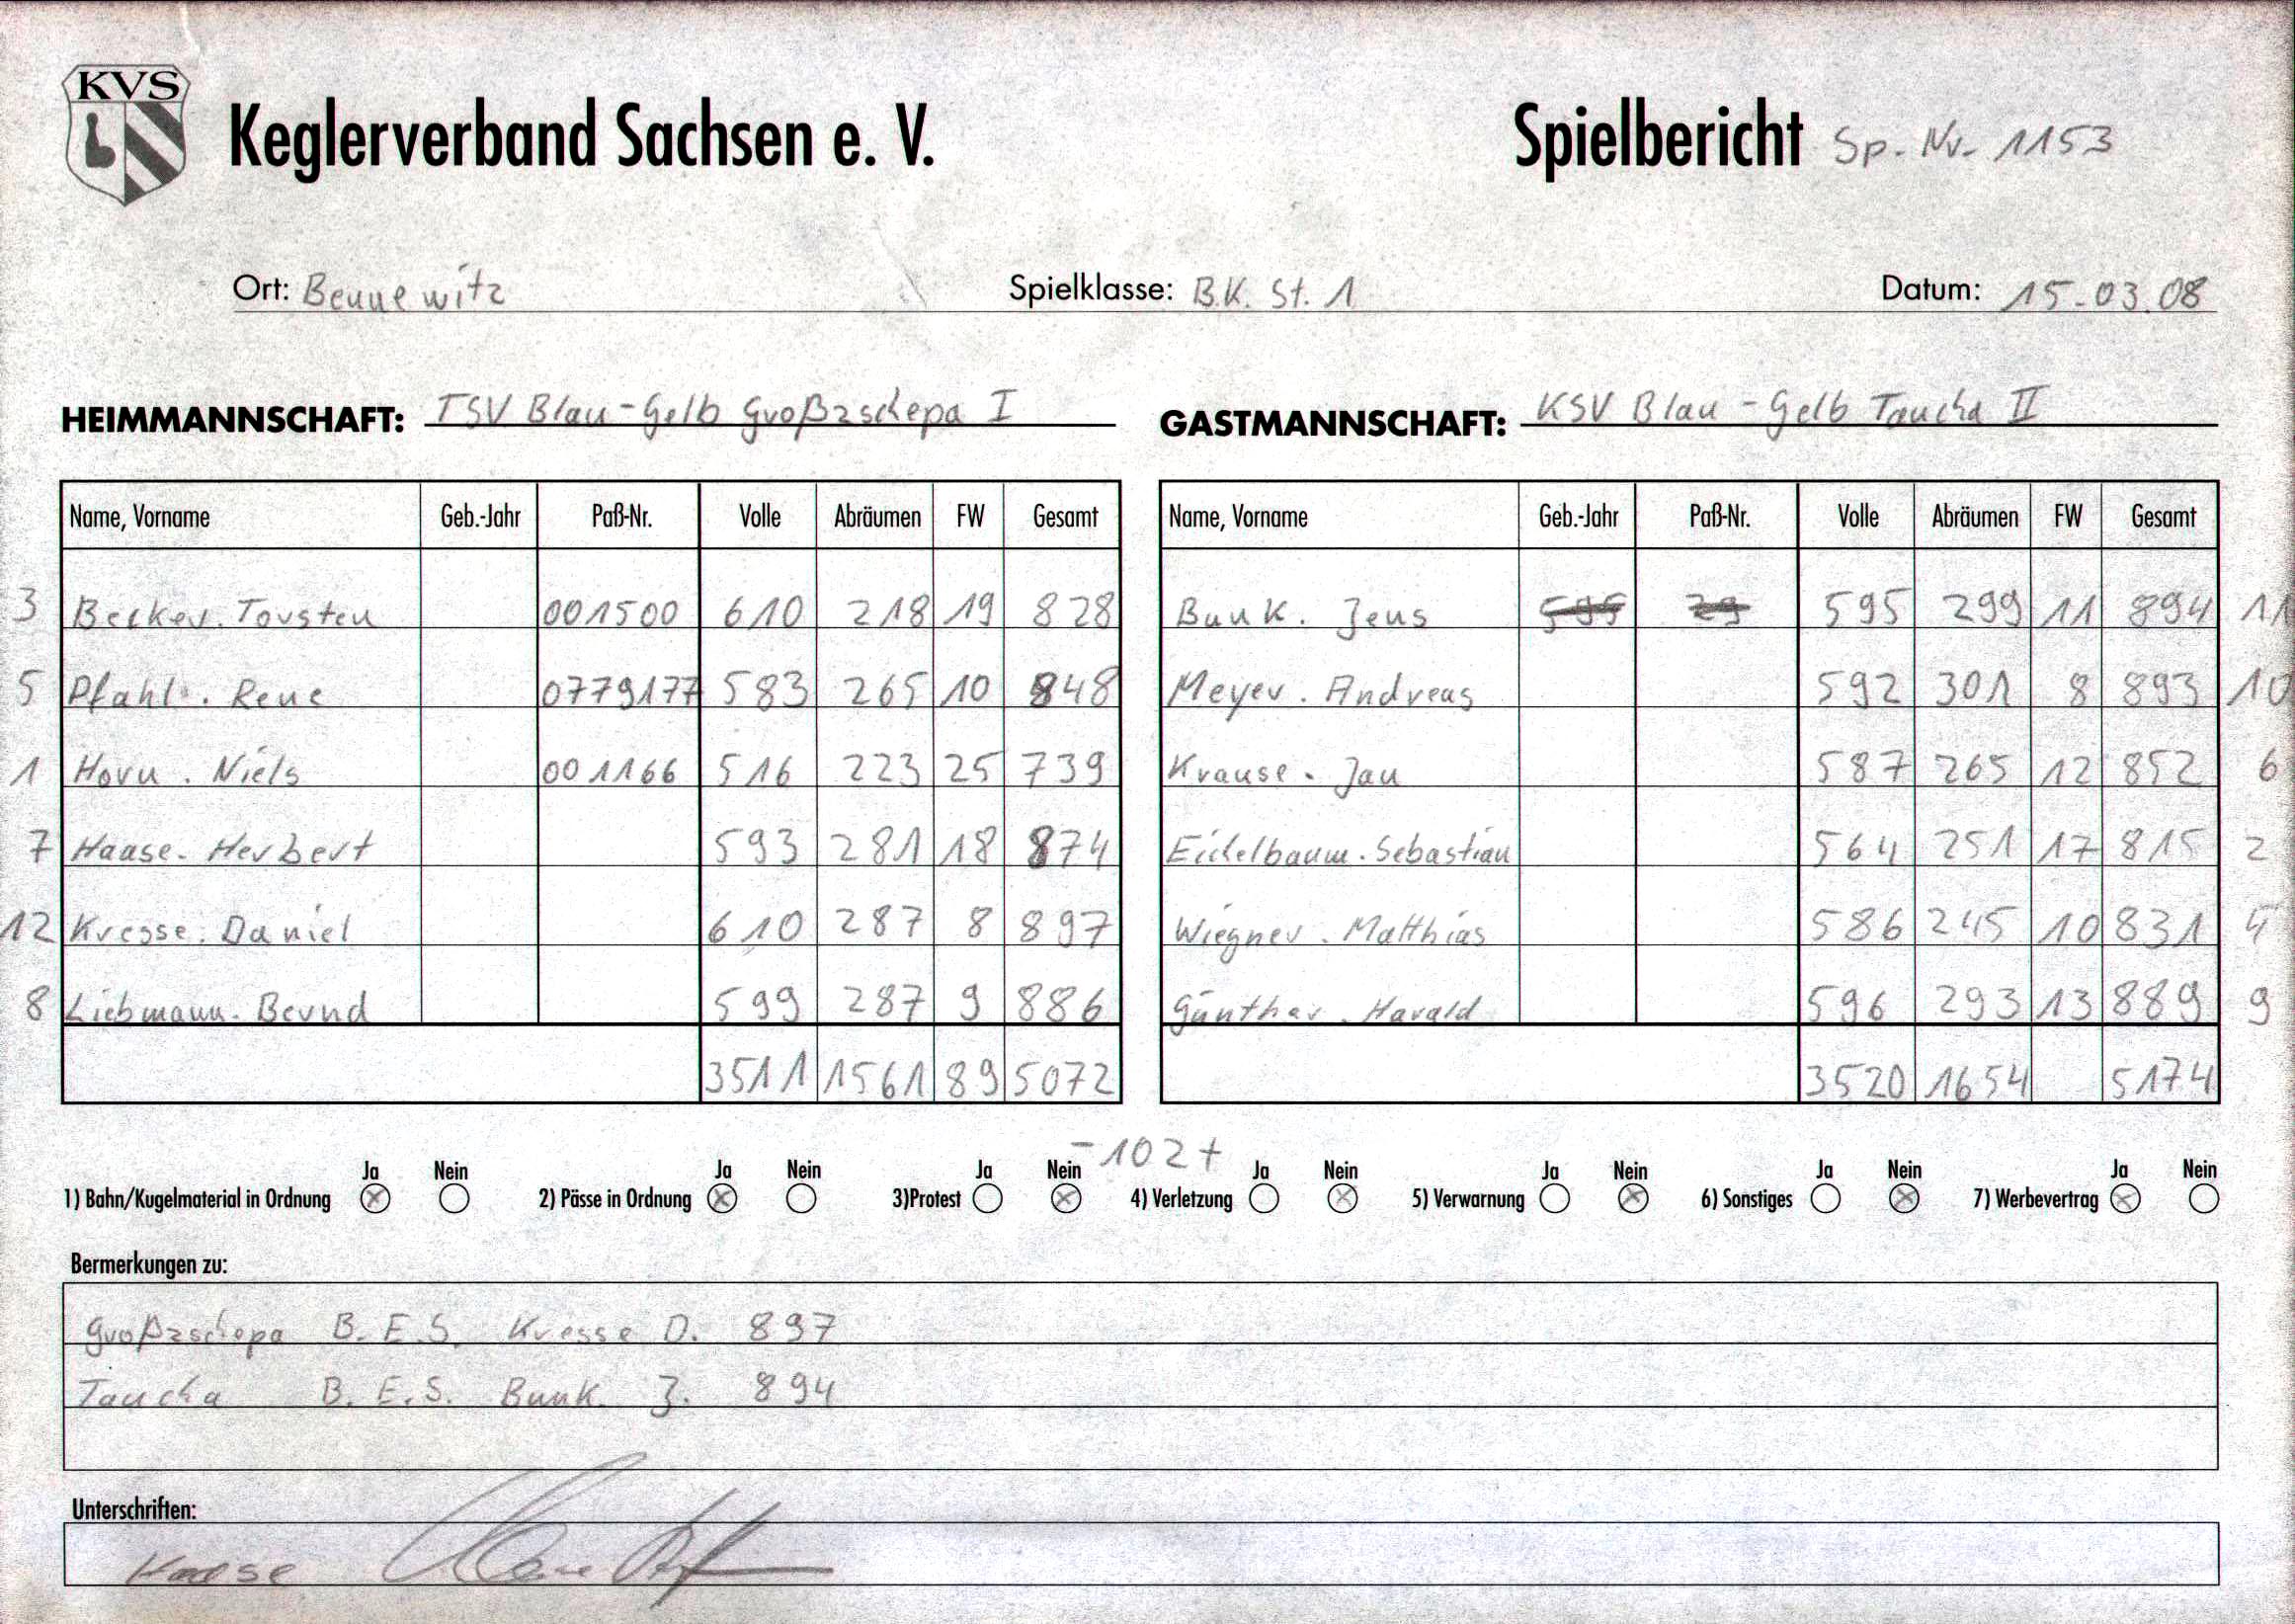 KVS
Keglerverband Sachsen e. V.
Spielbericht Sp. Nr. 1153
Ort: Bennewitz Spielklasse: B.K. St. 1 Datum: 15.03.08
HEIMMANNSCHAFT: TSV Blau-Gelb Großzschepa I GASTMANNSCHAFT: KSV Blau-Gelb Taucha II
Name, Vorname Geb.-Jahr Paß-Nr. Volle Abräumen FW Gesamt Name, Vorname Geb.-Jahr Paß-Nr. Volle Abräumen FW Gesamt
3 Becker. Torsten 001500 610 218 19 828 Bunk. Jens 595 29 595 299 11 894 11
5 Pfahl. Rene 0779177 583 265 10 848 Meyer. Andreas 592 301 8 893 10
1 Horn. Niels 001166 516 223 25 739 Krause. Jan 587 265 12 852 6
7 Haase. Herbert 593 281 18 874 Eichelbaum. Sebastian 564 251 17 815 2
12 Kresse. Daniel 610 287 8 897 Wiegner. Matthias 586 245 10 831 4
8 Liebmann. Bernd 599 287 9 886 Günther. Harald 596 293 13 889 9
3511 1561 89 5072 3520 1654 5174
-102+
Ja Nein Ja Nein Ja Nein Ja Nein Ja Nein Ja Nein Ja Nein
1) Bahn/Kugelmaterial in Ordnung 2) Pässe in Ordnung 3)Protest 4) Verletzung 5) Verwarnung 6) Sonstiges 7) Werbevertrag
Bermerkungen zu:
Großzschepa B.E.S. Kresse D. 897
Taucha B.E.S. Bunk J. 894
Unterschriften:
Haase